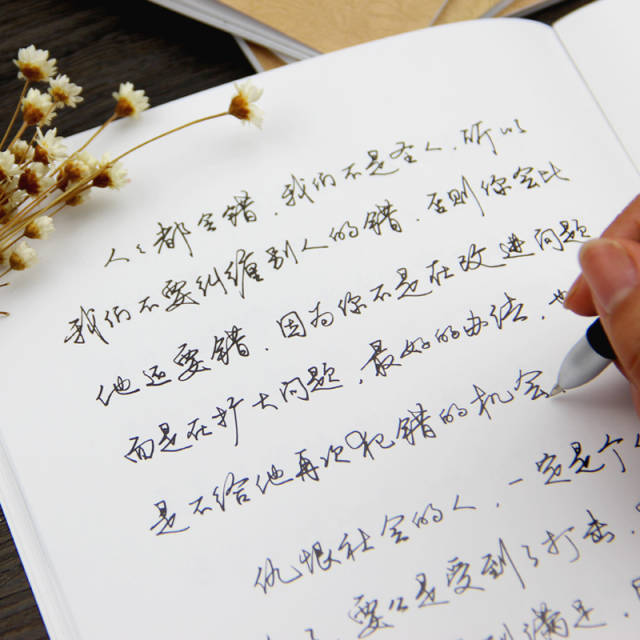 人人都会错.我们不是圣人.所以
我们不要纠缠到人的错.否则你会比
他还要错.因为你不是在改进问题
而是在扩大问题.最好的办法.也
是不给他再次犯错的机会
仇恨社会的人.一定是个
要么是受到了打击.
满足.